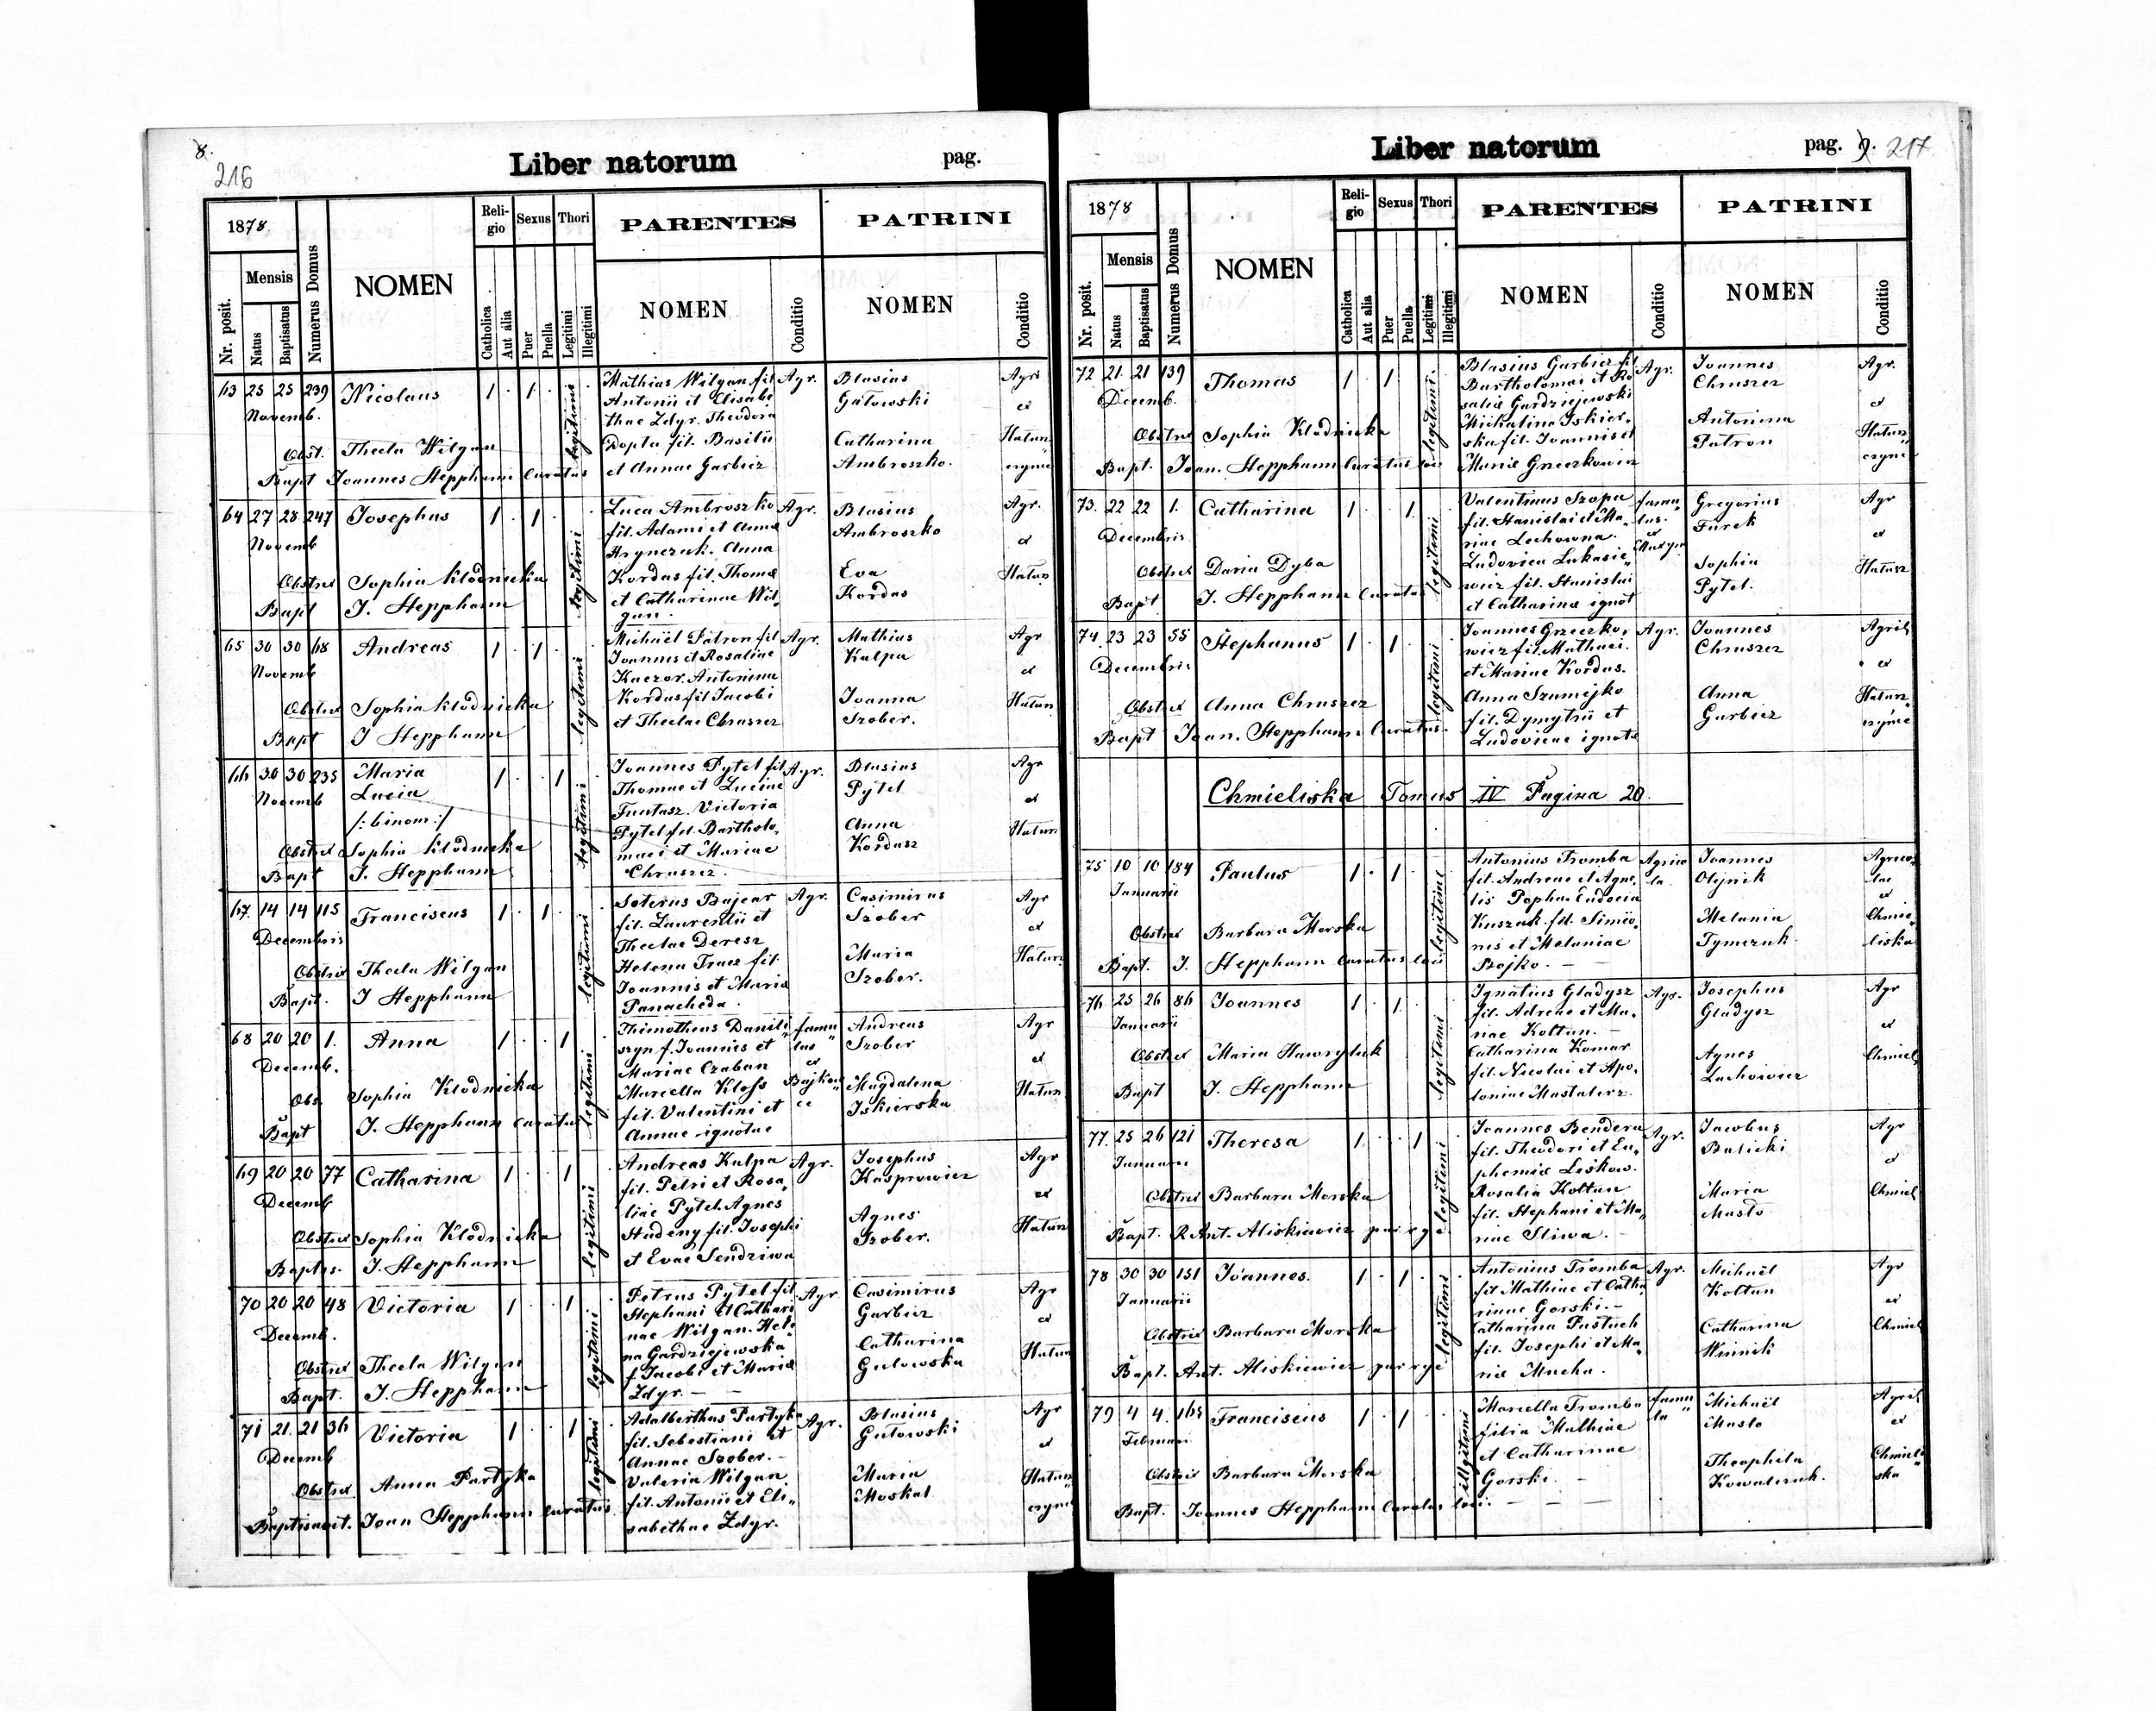 8.
216
Liber natorum
pag.
1878.
Nr. posit.
Mensis
Natus
Baptisatus
Numerus Domus
NOMEN
Reli-
gio
Catholica
Aut alia
Sexus
Puer
Puella
Thori
Legitimi
Illegitimi
PARENTES
NOMEN
Conditio
PATRINI
NOMEN
Conditio
63 25 25 239 Nicolaus 1 . 1 .
Novemb.
Obst. Thecla Wilgan
Bapt Joannes Hepphann Curatus
legitimi
Mathias Wilgan fil
Antonii et Elisabe
thae Zdyr. Theodora
Dopta fil. Basilii
et Annae Garbicz
Agr.
Blasius
Gutowski
Catharina
Ambroszko.
Agri
et
Hatun
czynie
64 27 28 247 Josephus 1 . 1 .
Novemb
Obstret Sophia Klodnicka
Bapt J. Hepphann
legitimi
Luca Ambroszko
fil. Adami et Anna
Hrynczuk. Anna
Kordas fil. Thoma
et Catharinae Wil„
gan.
Agr.
Blasius
Ambroszko
Eva
Kordas
Agr.
et
Hatun
65 30 30 68 Andreas 1 . 1 .
Novemb
Obstret Sophia Klodnicka
Bapt J Hepphann
legitimi
Michaël Patron fil
Joannis et Rosaliae
Kaczor. Antonina
Kordas fil Jacobi
et Theclae Chruszcz
Agr.
Mathias
Kulpa
Joanna
Szober.
Agr
et
Hatun
66 30 30 235 Maria 1 . . 1
Novemb Lucia
/: binom :/
Obstret Sophia Klodnicka
Bapt J. Hepphann
legitimi
Joannes Pytel fil
Thomae et Luciae
Funtasz. Victoria
Pytel fil. Bartholo„
maei et Mariae
Chruszcz.
Agr.
Blasius
Pytel
Anna
Kordasz
Agr
et
Hatun
67. 14 14 115 Franciscus 1 . 1 .
Decembris
Obstret Thecla Wilgan
Bapt. J Hepphann
legitimi
Soterus Bajcar
fil. Laurentii et
Theclae Deresz
Helena Tracz fil.
Joannis et Maria
Panacheda.
Agr.
Casimirus
Szober
Maria
Szober.
Agr
et
Hatun
68 20 20 1. Anna 1 . . 1
Decemb.
Obs. Sophia Klodnicka
Bapt J. Hepphann curatus
legitimi
Thimotheus Danili„
szyn f. Joannis et
Mariae Czaban
Marcella Kloss
fil. Valentini et
Annae ignotae
famu„
lus
et
Andreas
Szober
Magdalena
Iskierska
Agr
et
Hatun
69 20 20 77 Catharina 1 . . 1
Decemb
Obstret Sophia Klodnicka
Baptis. J. Hepphann
legitimi
Andreas Kulpa
fil. Petri et Rosa„
liae Pytel. Agnes
Studeny fil. Josephi
et Evae Sendziwa
Agr.
Josephus
Kasprowicz
Agnes
Szober.
Agr
et
Hatun
70 20 20 48 Victoria 1 . . 1
Decemb.
Obstret Thecla Wilgan
Bapt. J. Hepphann
legitimi
Petrus Pytel fil
Stephani et Cathari
nae Wilgan. Hele
na Gardziejewska
f Jacobi et Maria
Zdyr. — —
Agr.
Casimirus
Garbicz
Catharina
Gutowska
Agr
et
Hatun
71 21. 21 36 Victoria 1 . . 1
Decemb
Obstret Anna Partyka
Baptisavit. Joan Hepphann Curatus
legitimi
Adalberthus Partyka
fil. Sebestiani et
Annae Szober. —
Valeria Wilgan
fil. Antonii et Eli„
sabethae Zdyr.
Agr.
Blasius
Gutowski
Maria
Moskal
Agr
et
Hatun„
czynie
Liber natorum
pag. 9. 217
1878
Nr. posit.
Mensis
Natus
Baptisatus
Numerus Domus
NOMEN
Reli-
gio
Catholica
Aut alia
Sexus
Puer
Puella
Thori
Legitimi
Illegitimi
PARENTES
NOMEN
Conditio
PATRINI
NOMEN
Conditio
72 21. 21 139 Thomas 1 . 1 .
Decemb.
Obstret Sophia Klodnicka
Bapt. Joan. Hepphann Curatus loci
legitimi.
Blasius Garbicz fil
Bartholomaei et Ro
salia Gardziejewski
Michalina Iskier„
ska fil. Joannis et
Maria Greczkowicz
Agr.
Joannes
Chruszcz
Antonina
Patron
Agr.
et
Hatun„
czynie
73. 22 22 1. Catharina 1 . . 1.
Decembris
Obstret Daria Dyba
Bapt J. Hepphann Curatus
legitimi
Valentinus Szopa
fil. Stanislai et Ma„
riae Lechowna.
Ludovica Lukasie„
wicz fil. Stanislai
et Catharina ignot
famu„
lus.
et
Gregorius
Turek
Sophia
Pytel.
Agr
et
Hatun
74. 23 23 55 Stephanus 1 . 1 .
Decembris
Obstret Anna Chruszcz
Bapt Joan. Hepphann Curatus.
legitimi
Joannes Greczko„
wicz fil. Mathaei.
et Mariae Kordas.
Anna Szumejko
fil. Dymytrii et
Ludovicae ignota
Agr.
Joannes
Chruszcz
Anna
Garbicz
Agricl
et
Hatun„
czynie
Chmieliska Tomus IV Pagina 20.
75 10 10 184 Paulus 1 . 1 .
Januarii
Obstret Barbara Morska
Bapt. J. Hepphann Curatus loci
legitimi
Antonius Tromba
fil. Andreae et Agne„
tis Pophas Eudocia
Kuszak fil. Simio„
nis et Melaniae
Bojko. — —
Agrico
la.
Joannes
Olijnik
Melania
Tymczuk
Agrico„
lae
et
Chmie„
liska
76 25 26 86 Joannes 1 . 1.
Januarii
Obstret Maria Hawryluk
Bapt J. Hepphann
legitimi
Ignatius Gladysz
fil. Adreae et Ma„
riae Koltun. —
Catharina Komar
fil. Nicolai et Apo„
loniae Mastalerz.
Agr.
Josephus
Gladysz
Agnes
Lachowicz
Agr
et
Chmiel
77. 25 26 121 Theresa 1. . . 1
Januarii
Obstret Barbara Morska
Bapt. R Ant. Aliskiewicz par r g e
legitimi
Joannes Bendera
fil. Theodori et Eu„
phemia Leskow.
Rosalia Koltun
fil. Stephani et Ma„
riae Sliwa. —
Agr.
Jacobus
Balicki
Maria
Maslo
Agr
et
Chmiel
78 30 30 151 Joannes. 1 . 1 .
Januarii
Obstret Barbara Morska
Bapt. Ant. Aliskiewicz par r g e
legitimi
Antonius Tromba
fil Mathiae et Catha„
rinae Gorski. —
Catharina Pastuch
fil. Josephi et Ma„
ria Mucha.
Agr.
Michaël
Koltun
Catharina
Winnik
Agr
et
Chmiel
79 4 4. 165 Franciscus 1 . 1 .
Februari
Obstret Barbara Morska
Bapt. Joannes Hepphann Curatus loci.
illegitimi
Marcella Tromba
filia Mathiae
et Catharinae
Gorski. —
famu„
la
Michaël
Maslo
Theophila
Kowalczuk.
Agricl
et
Chmieli„
ska